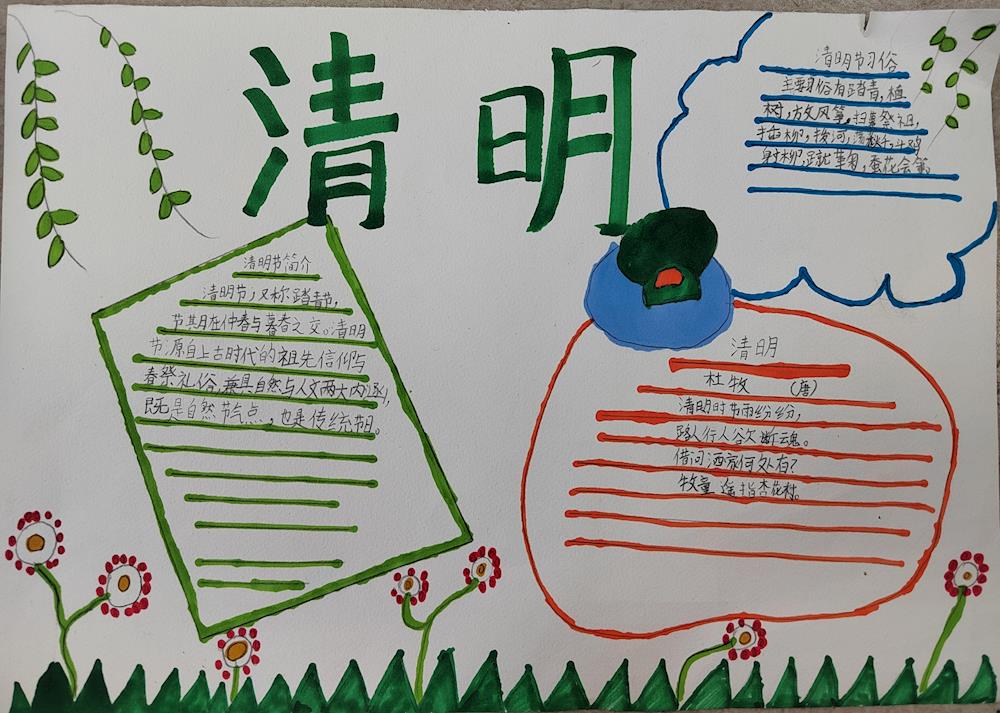 清明
清明节习俗
主要习俗有踏青，植
树，放风筝，扫墓祭祖，
插柳，拔河，荡秋千，斗鸡
射柳，蹴鞠，蚕花会等。
清明节简介
清明节，又称踏青节，
节期在仲春与暮春之交。清明
节，源自上古时代的祖先信仰与
春祭礼俗，兼具自然与人文两大内涵，
既是自然节气点，也是传统节日。
清明
杜牧 （唐）
清明时节雨纷纷，
路人行人欲断魂。
借问酒家何处有？
牧童遥指杏花村。